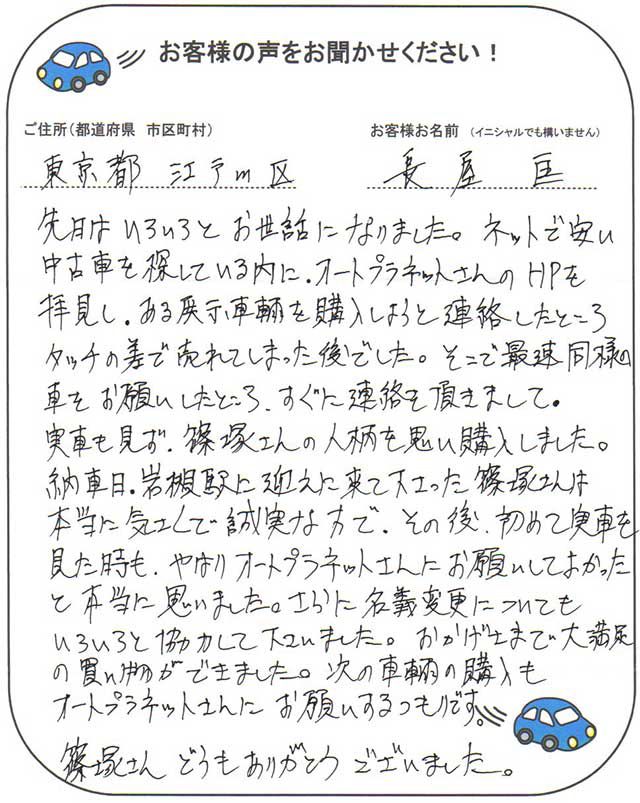 お客様の声をお聞かせください！
ご住所（都道府県　市区町村）
お客様お名前　（イニシャルでも構いません）
東京都 江戸川区
長屋 匡
先日はいろいろとお世話になりました。ネットで安い
中古車を探している内に、オートプラネットさんのHPを
拝見し、ある展示車輌を購入しようと連絡したところ
タッチの差で売れてしまった後でした。そこで最速同様の
車をお願いしたところ、すぐに連絡を頂きまして。
実車も見ず、篠塚さんの人柄を思い購入しました。
納車日、岩槻駅に迎えに来て下さった篠塚さんは
本当に気さくで誠実な方で、その後、初めて実車を
見た時も、やはりオートプラネットさんにお願いしてよかった
と本当に思いました。さらに名義変更についても
いろいろと協力して下さいました。おかげさまで大満足
の買い物ができました。次の車輌の購入も
オートプラネットさんにお願いするつもりです。
篠塚さん どうもありがとうございました。